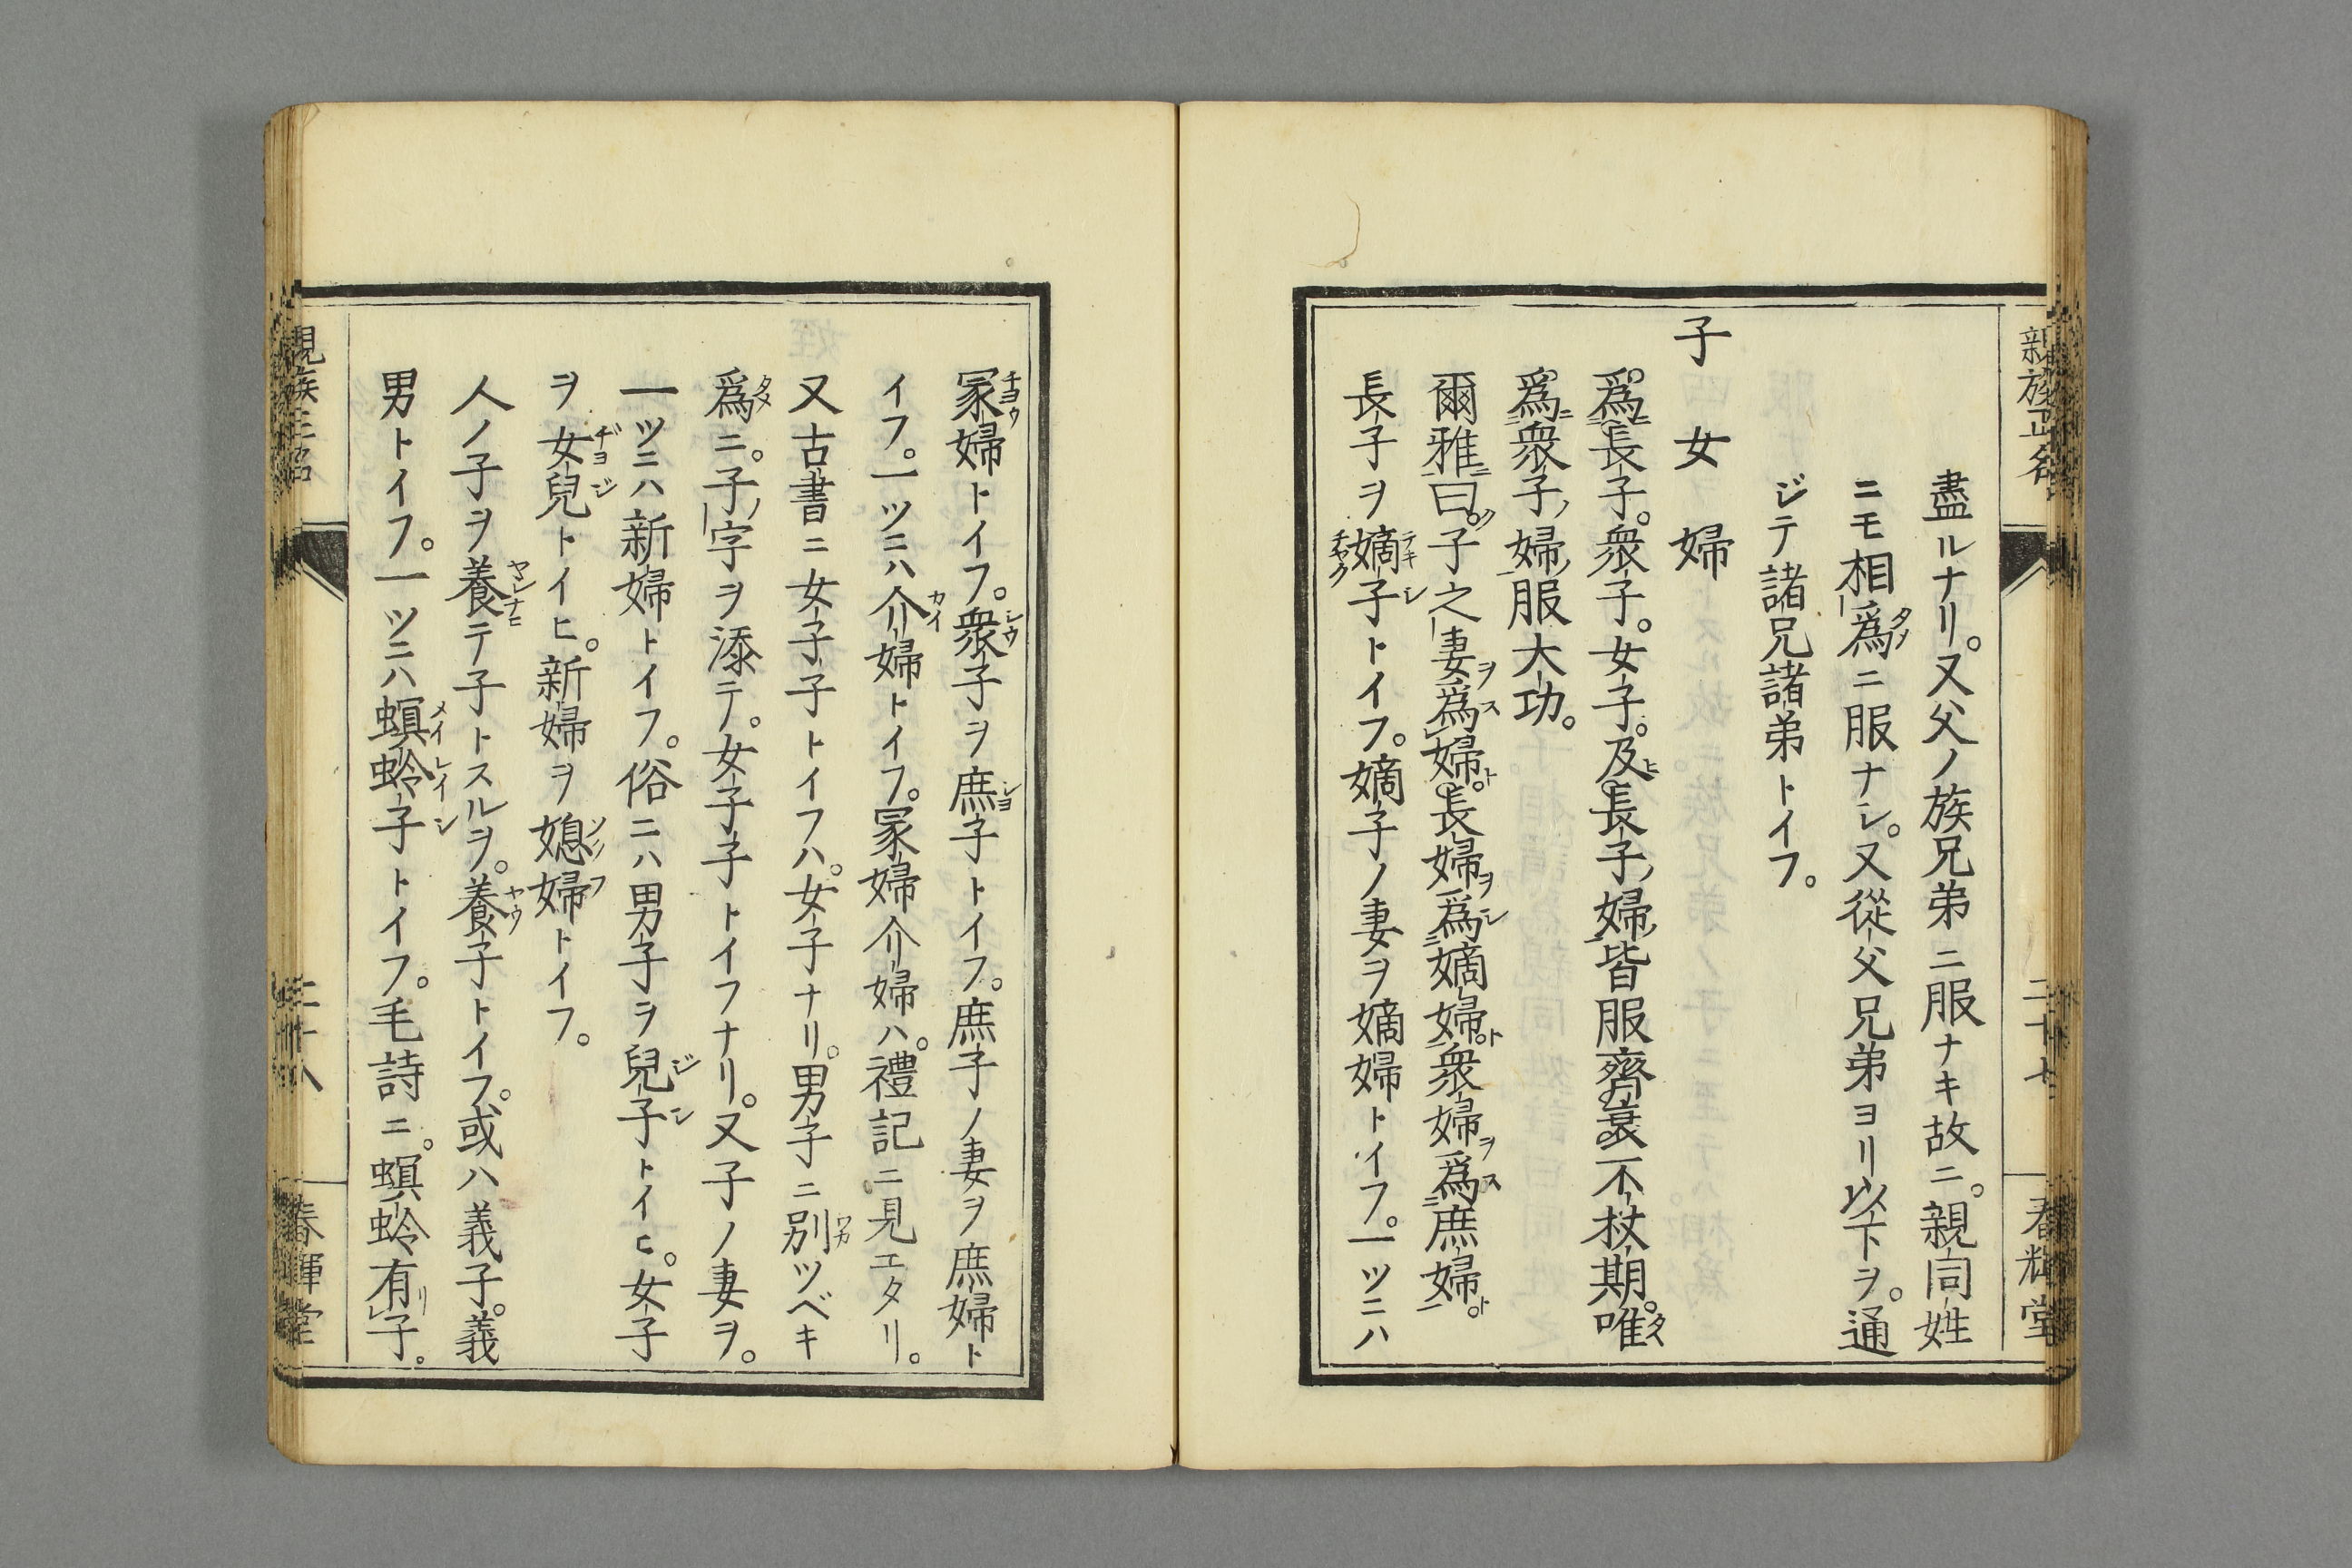 親族正名
二十七
春輝堂
盡ルナリ。又父ノ族兄弟ニ服ナキ故ニ。親同姓
ニモ相爲ニ服ナシ。又從父兄弟ヨリ以下ヲ。通
ジテ諸兄諸弟トイフ。
子女婦
爲長子。衆子。女子。及長子婦皆服齊衰不杖期。唯
爲衆子婦服大功。
爾雅曰。子之妻爲婦。長婦爲嫡婦。衆婦爲庶婦。
長子ヲ嫡子トイフ。嫡子ノ妻ヲ嫡婦トイフ。一ツニハ
冢婦トイフ。衆子ヲ庶子トイフ。庶子ノ妻ヲ庶婦ト
イフ。一ツニハ介婦トイフ。冢婦介婦ハ。禮記ニ見エタリ。
又古書ニ女子子トイフハ。女子ナリ。男子ニ別ツベキ
爲ニ。子字ヲ添テ。女子子トイフナリ。又子ノ妻ヲ。
一ツニハ新婦トイフ。俗ニハ男子ヲ兒子トイヒ。女子
ヲ女兒トイヒ。新婦ヲ媳婦トイフ。
人ノ子ヲ養テ子トスルヲ。養子トイフ。或ハ義子。義
男トイフ。一ツニハ螟蛉子トイフ。毛詩ニ。螟蛉有子。
親族正名
二十八
春輝堂